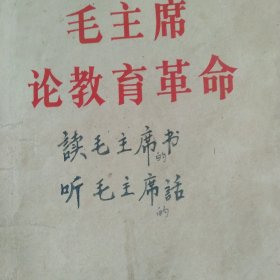 毛主席
论教育革命
讀毛主席的书
听毛主席的話